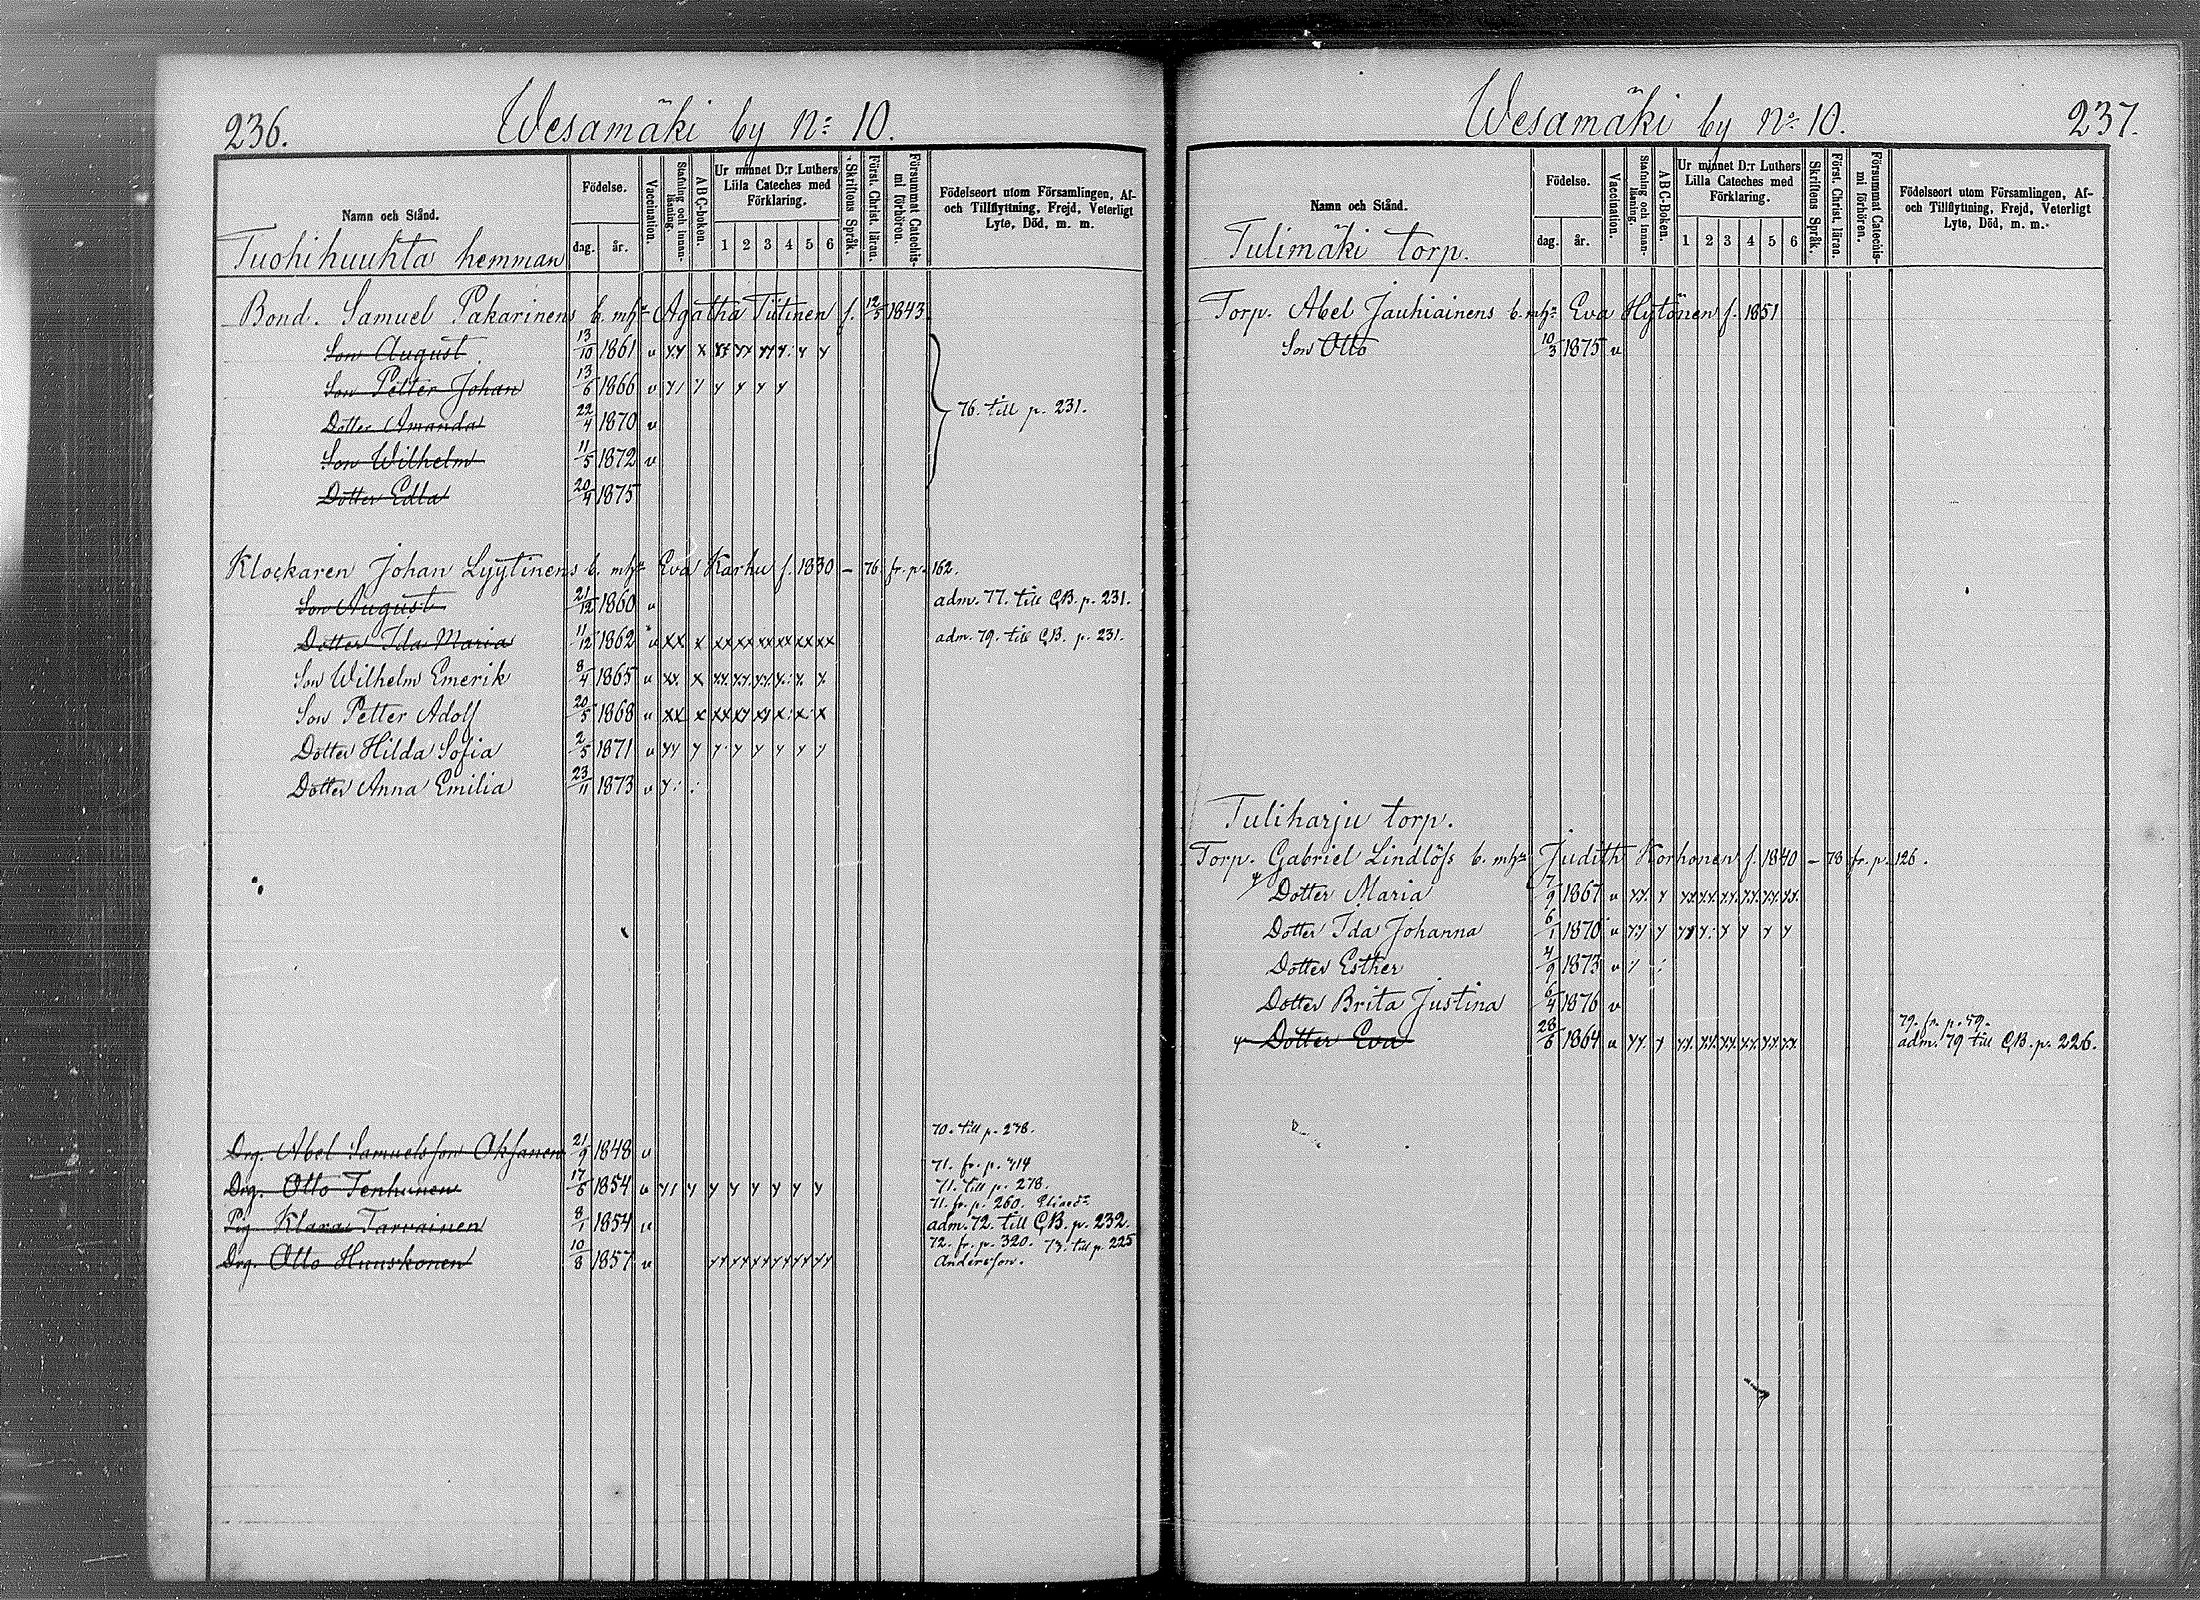 236.
Wesamäki by N:o 10.
Namn och Stånd.
Födelse.
dag.
år.
Vaccination.
Stafning och innan-läsning.
A B C-boken.
Ur minnet D:r Luthers Lilla Cateches med Förklaring.
1 2 3 4 5 6
Skriftens Språk.
Först. Christ. läran.
Försummat Catechis-mi förhören.
Födelseort utom Församlingen, Af-
och Tillflyttning, Frejd, Veterligt
Lyte, Död, m. m.
Tuohihuuhta hemman
Bond. Samuel Pakarinens b. mhr Agatha Tiitinen f. 12/5 1843.
Son August 13/10 1861 v
Son Petter Johan 13/6 1866 v
Dotter Amanda 22/4 1870 v
76. till p. 231.
Son Wilhelm 11/5 1872 v
Dotter Edla 20/4 1875
Klockaren Johan Lyytinens b. mhr Eva Karhu f. 1830 – 76 fr. p. 162.
Son August 21/12 1860 v adm. 77. till C.B. p. 231.
Dotter Ida Maria 11/12 1862 v xx x xx xx xx xx xx xx adm. 79. till C.B. p. 231.
Son Wilhelm Emerik 8/4 1865 v
Son Petter Adolf 20/5 1868 v
Dotter Hilda Sofia 2/5 1871 v
Dotter Anna Emilia 23/11 1873 v
70. till p. 278.
Drg. Abel Samuelsson Oksanen 21/9 1848 v
71. fr. p. 314
Drg. Otto Tenhunen 17/6 1854 v 71. till p. 278.
71. fr. p. 260.
Pig Klara Tarvainen 8/1 1854 v adm. 72. till C.B. p. 232.
72. fr. p. 320. 73. till p. 225
Drg. Otto Huuskonen 10/8 1857 v Andersson.
Wesamäki by N:o 10.
237.
Namn och Stånd.
Födelse.
dag.
år.
Vaccination.
Stafning och innan-läsning.
A B C-Boken.
Ur minnet D:r Luthers Lilla Cateches med Förklaring.
1 2 3 4 5 6
Skriftens Språk.
Först. Christ. läran.
Försummat Catechis-mi förhören.
Födelseort utom Församlingen, Af-
och Tillflyttning, Frejd, Veterligt
Lyte, Död, m. m.
Tulimäki torp.
Torp. Abel Jauhiainens b. mhr Eva Hytönen f. 1851
Son Otto 10/3 1875 v
Tuliharju torp.
Torp. Gabriel Lindlöfs b. mhr Judith Korhonen f. 1840 – 78 fr. p. 126.
Dotter Maria 7/9 1867 v
Dotter Ida Johanna 6/1 1870 v
Dotter Esther 4/9 1873 v
Dotter Brita Justina 6/4 1876 v
79. fr. p. 59.
Dotter Eva 28/6 1864 v adm. 79 till C.B. p. 226.